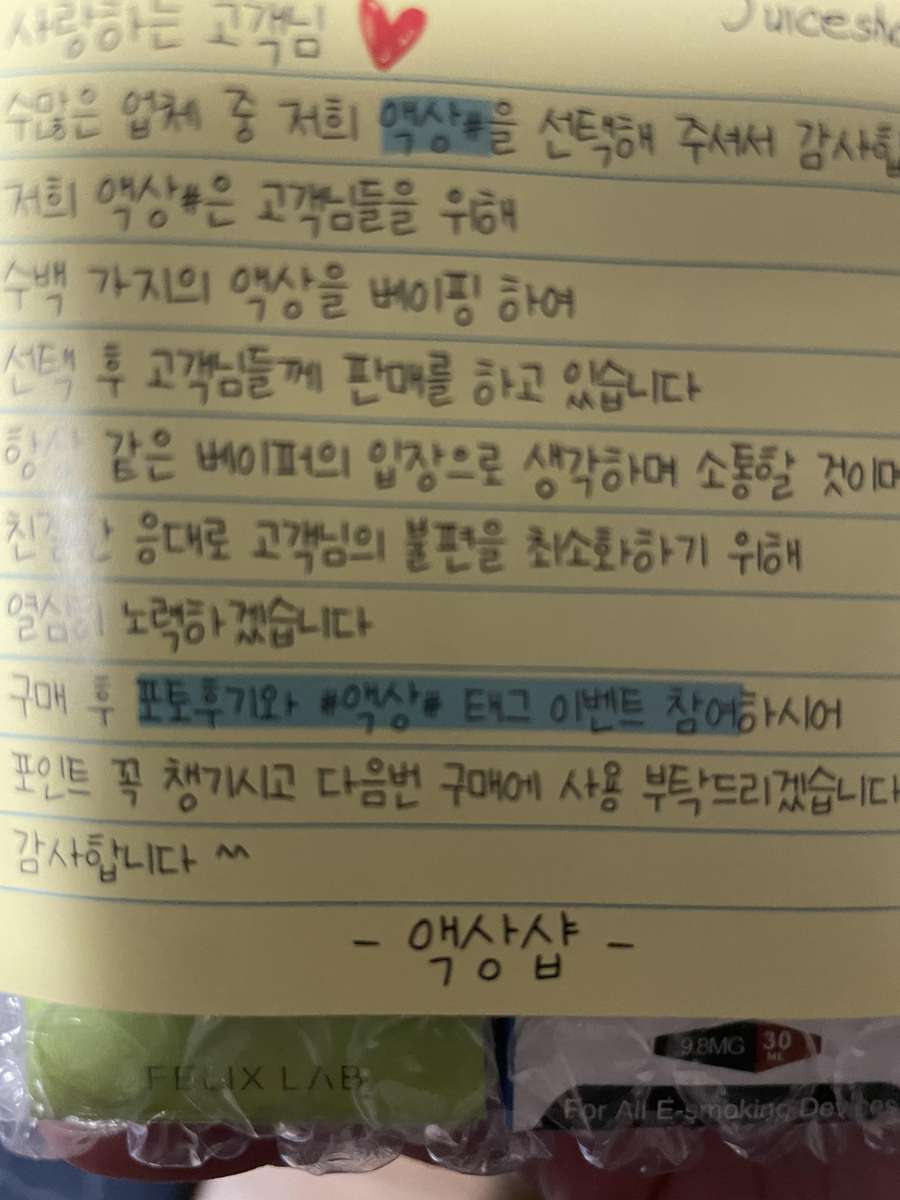 사랑하는 고객님
Juicesho
수많은 업체 중 저희 액상#을 선택해 주셔서 감사합
저희 액상#은 고객님들을 위해
수백 가지의 액상을 베이핑 하여
선택 후 고객님들께 판매를 하고 있습니다
항상 같은 베이퍼의 입장으로 생각하며 소통할 것이며
친절한 응대로 고객님의 불편을 최소화하기 위해
열심히 노력하겠습니다
구매 후 포토후기와 #액상# 태그 이벤트 참여하시어
포인트 꼭 챙기시고 다음번 구매에 사용 부탁드리겠습니다
감사합니다 ^^
- 액상샵 -
FELIX LAB
9.8MG 30 ML
For All E-smoking Devices